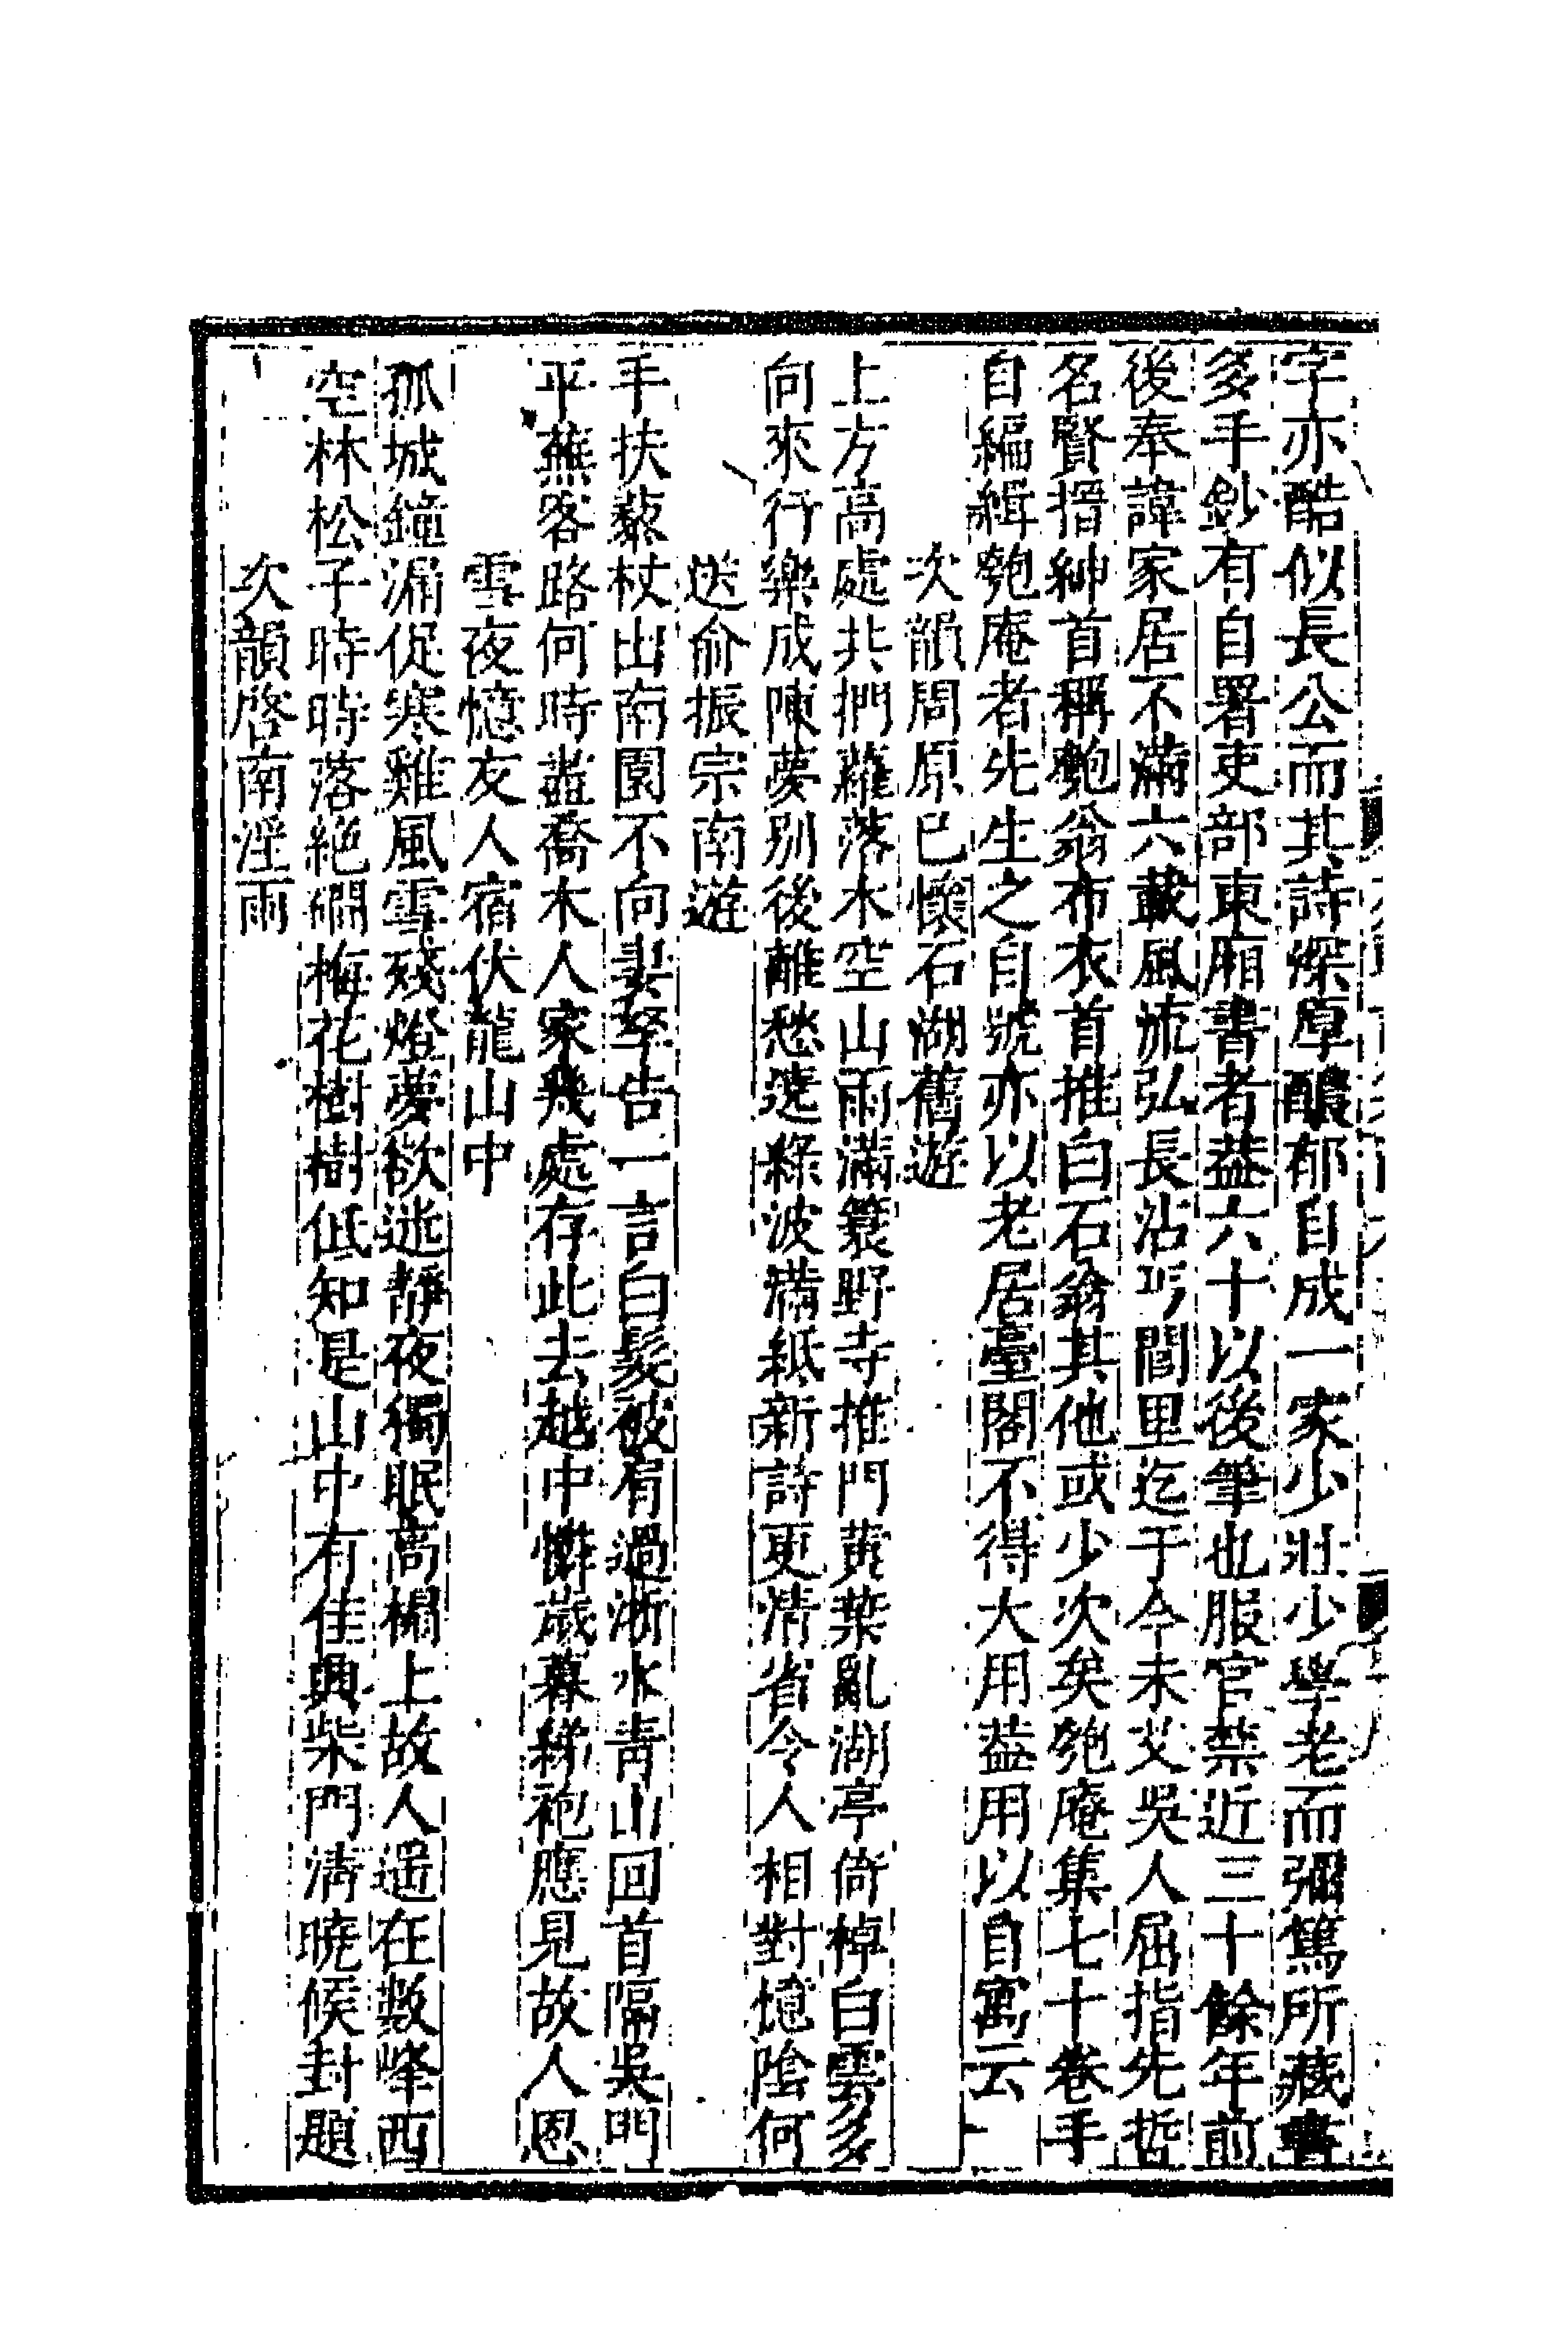 字亦酷似長公而其詩深厚醲郁自成一家少壯少學老而彌篤所藏書
多手鈔有自署吏部東廂書者葢六十以後筆也服官禁近三十餘年前
後奉諱家居不滿六載風流弘長沾丐閭里迄于今未艾吳人屈指先哲
名賢搢紳首稱匏翁布衣首推白石翁其他或少次矣匏庵集七十卷手
自編緝匏庵者先生之自號亦以老居臺閣不得大用葢用以自寓云
次韻周原已懷石湖舊遊
上方高處共捫蘿落木空山雨滿簑野寺推門黃葉亂湖亭倚棹白雲多
向來行樂成陳夢別後離愁遶綠波滿紙新詩更清省令人相對憶陰何
送俞振宗南遊
手扶藜杖出南園不向妻孥告一言白髮被肩過浙水青山回首隔吳門
平蕪客路何時盡喬木人家幾處存此去越中憐歲暮綈袍應見故人恩
雪夜憶友人宿伏龍山中
孤城鐘漏促寒雞風雪殘燈夢欲迷靜夜獨眠高榻上故人遥在數峰西
空林松子時時落絕磵梅花樹樹低知是山中有佳興柴門清曉候封題
次韻啓南淫雨